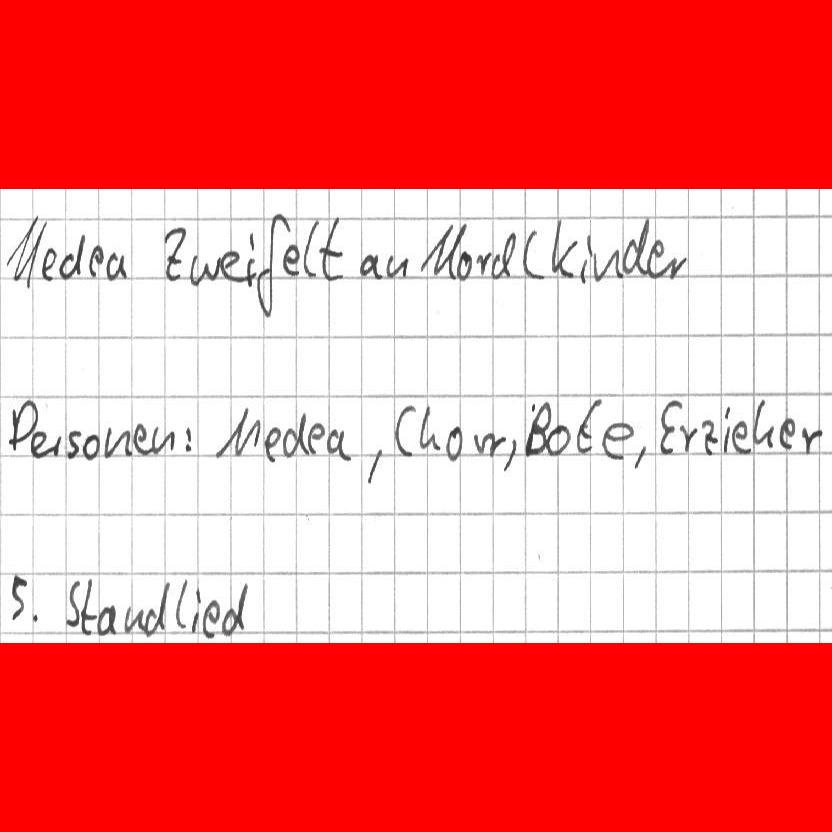 Medea Zweifelt an Mord (Kinder
Personen: Medea, Chor, Bote, Erzieher
5. Standlied